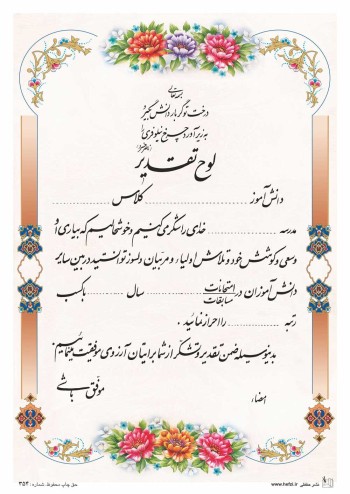 بسمه تعالی
درخت تو گر بار دانش بگیرد
به زیر آورد چرخ نیلوفری را
لوح تقدیر
دانش آموز .................... کلاس ....................
مدرسه .................... خدای را شکر می کنیم و خوشحالیم که بیاری او
و سعی و کوشش خود و تلاش اولیاء و مربیان دلسوز توانستید در بین سایر
دانش آموزان در امتحانات مسابقات .................... سال .................... با کسب
رتبه .................... را احراز نمائید .
بدینوسیله ضمن تقدیر و تشکر از شما برایتان آرزوی موفقیت مینمائیم.
موفق باشی
امضاء
حق چاپ محفوظ، شماره: ۳۵۴
نشر حافظی www.hefzi.ir